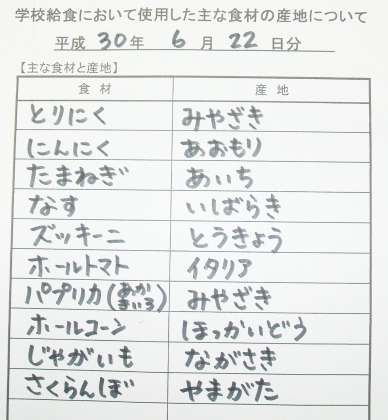 学校給食において使用した主な食材の産地について
平成 30 年 6 月 22 日分
【主な食材と産地】
食材 産地
とりにく みやざき
にんにく あおもり
たまねぎ あいち
なす いばらき
ズッキーニ とうきょう
ホールトマト イタリア
パプリカ(あか きいろ) みやざき
ホールコーン ほっかいどう
じゃがいも ながさき
さくらんぼ やまがた